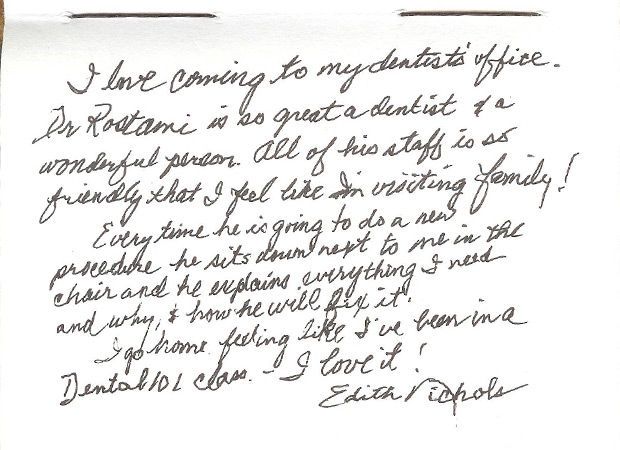 I love coming to my dentists' office.
Dr Rostami is so great a dentist & a
wonderful person. All of his staff is so
friendly that I feel like I'm visiting family!
Everytime he is going to do a new
procedure he sits down next to me in the
chair and he explains everything I need
and why, & how he will fix it.
I go home feeling like I've been in a
Dental 101 class. - I love it!
Edith Nichols